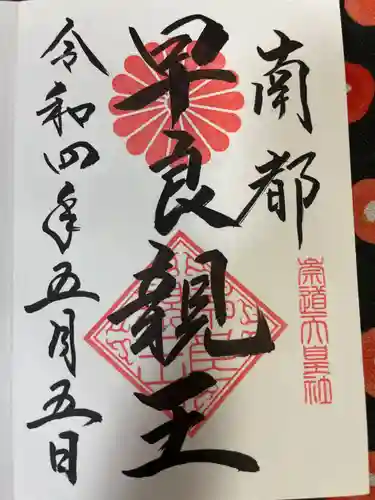 南都
崇道天皇社
早良親王
令和四年五月五日